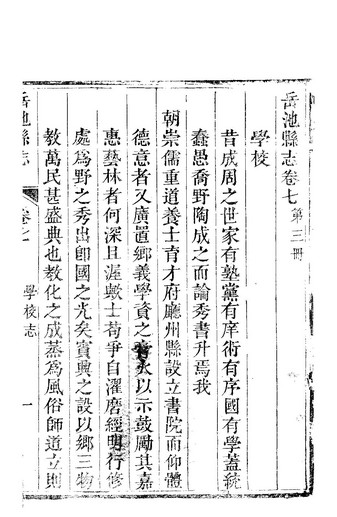 岳池縣志卷七 第三冊
學校
昔成周之世家有塾黨有庠術有序國有學蓋統
蠢愚喬野陶成之而論秀書升焉我
朝崇儒重道養士育才府廳州縣設立書院而仰體
德意者又廣置鄉義學資之膏火以示鼓勵其嘉
惠藝林者何深且渥歟士苟爭自濯磨經明行修
處爲野之秀出卽國之光矣賓興之設以鄉三物
教萬民甚盛典也教化之成蒸爲風俗師道立則
岳池縣志
卷七
學校志
一